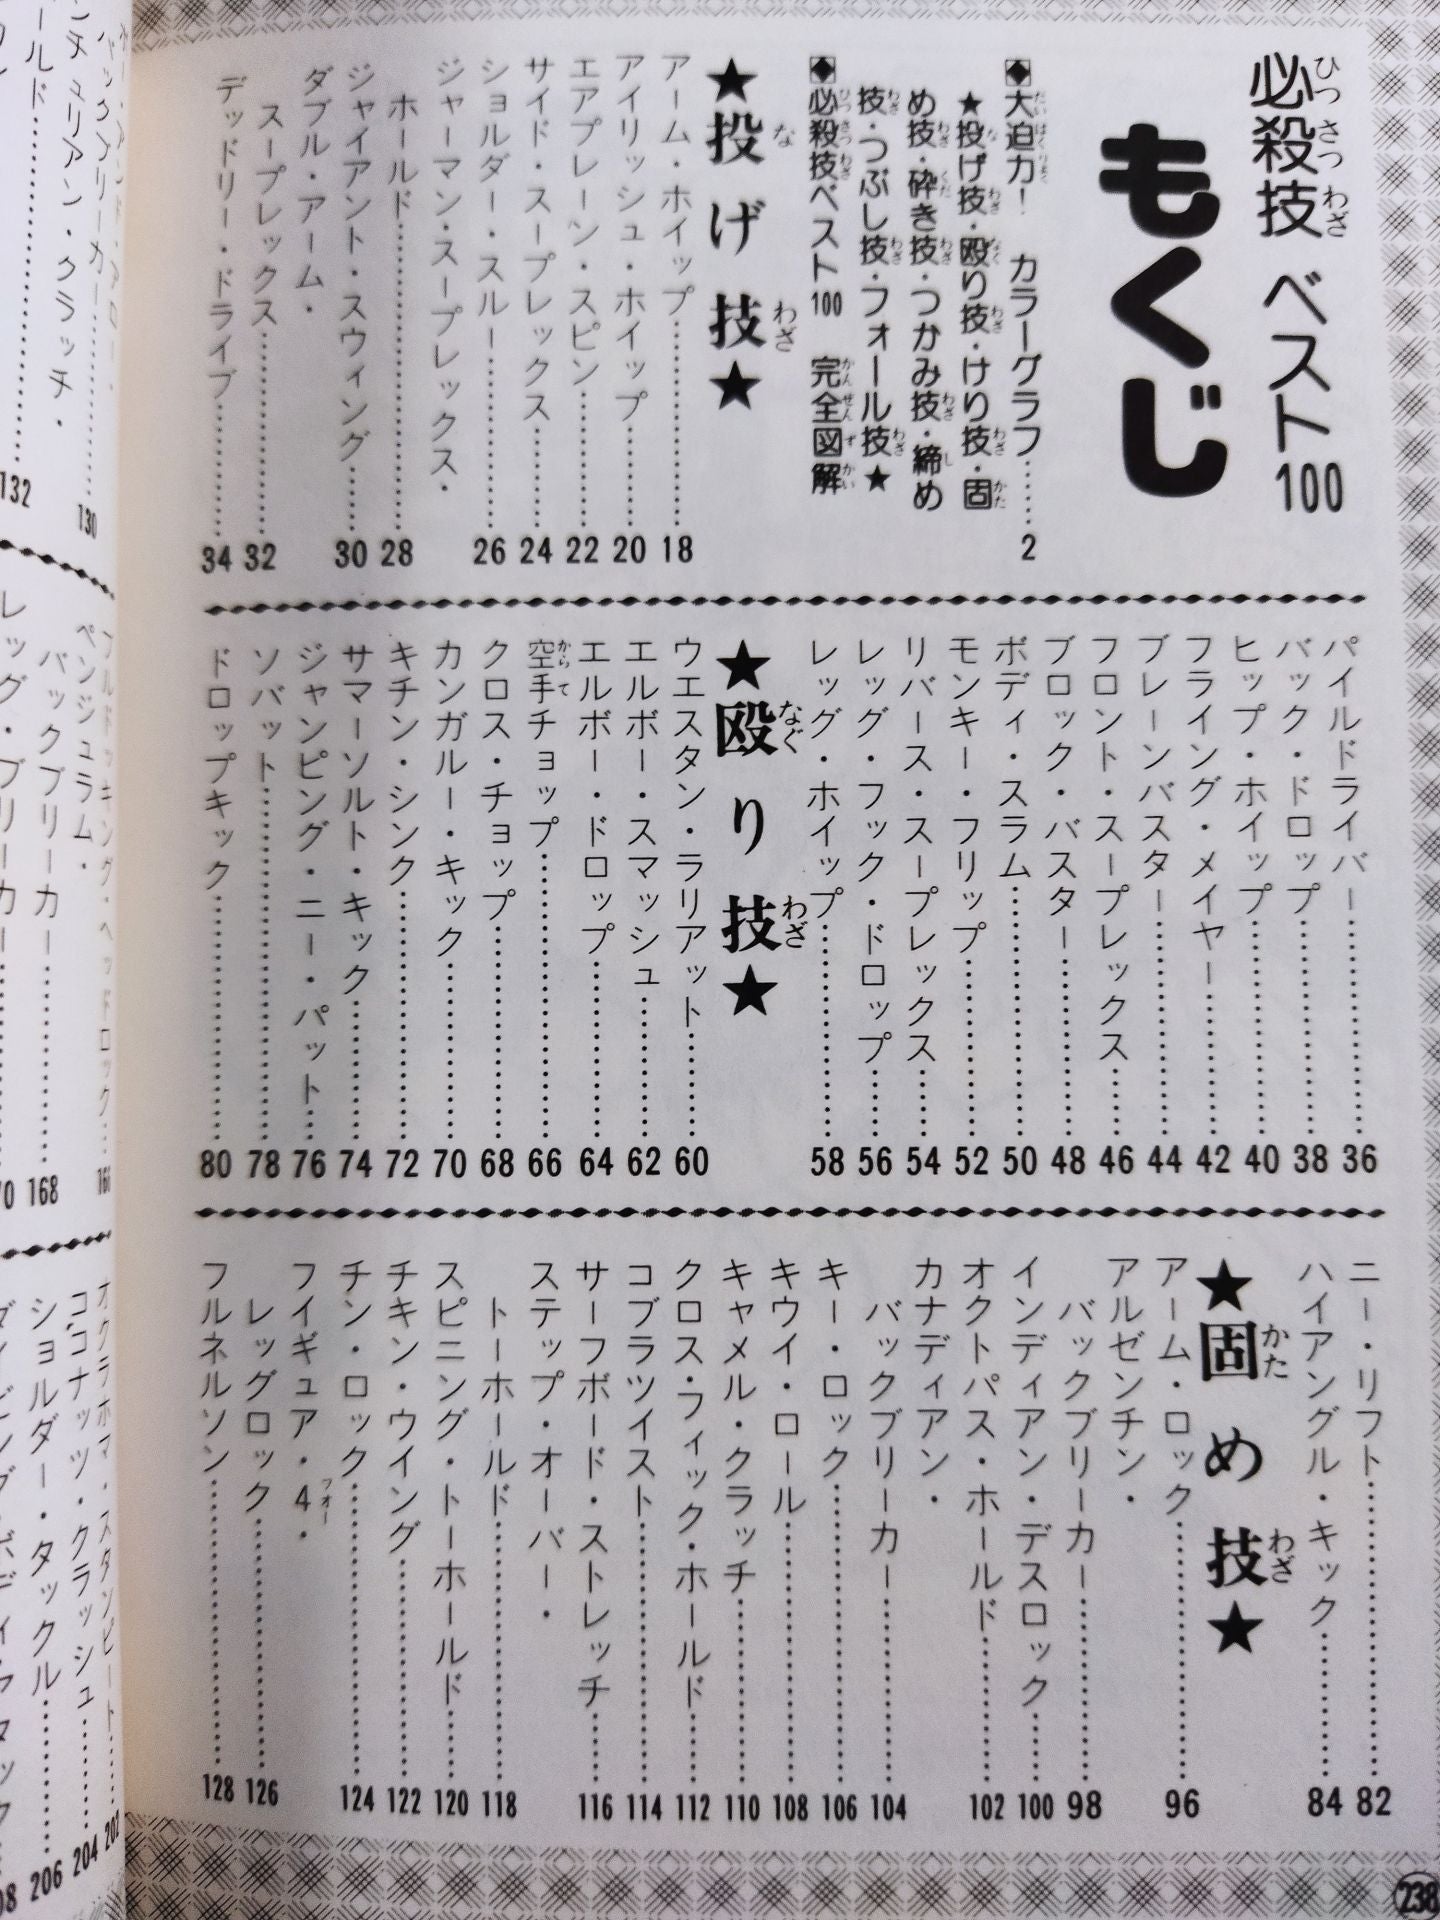 必殺技 ベスト100
もくじ
◆大迫力! カラーグラフ……2
★投げ技・殴り技・けり技・固
め技・砕き技・つかみ技・締め
技・つぶし技・フォール技★
◆必殺技ベスト100 完全図解
★投げ技★
アーム・ホイップ……18
アイリッシュ・ホイップ……20
エアプレーン・スピン……22
サイド・スープレックス……24
ショルダー・スルー……26
ジャーマン・スープレックス・
ホールド……28
ジャイアント・スウィング……30
ダブル・アーム・
スープレックス……32
デッドリー・ドライブ……34
パイルドライバー……36
バック・ドロップ……38
ヒップ・ホイップ……40
フライング・メイヤー……42
ブレーンバスター……44
フロント・スープレックス……46
ブロック・バスター……48
ボディ・スラム……50
モンキー・フリップ……52
リバース・スープレックス……54
レッグ・フック・ドロップ……56
レッグ・ホイップ……58
★殴り技★
ウエスタン・ラリアット……60
エルボー・スマッシュ……62
エルボー・ドロップ……64
空手チョップ……66
クロス・チョップ……68
カンガルー・キック……70
キチン・シンク……72
サマーソルト・キック……74
ジャンピング・ニー・パット……76
ソバット……78
ドロップキック……80
ニー・リフト……82
ハイアングル・キック……84
★固め技★
アーム・ロック……96
アルゼンチン・
バックブリーカー……98
インディアン・デスロック……100
オクトパス・ホールド……102
カナディアン・
バックブリーカー……104
キー・ロック……106
キウイ・ロール……108
キャメル・クラッチ……110
クロス・フィック・ホールド……112
コブラツイスト……114
サーフボード・ストレッチ……116
ステップ・オーバー・
トーホールド……118
スピニング・トーホールド……120
チキン・ウイング……122
チン・ロック……124
フイギュア・4・
レッグロック……126
フルネルソン……128
238
130
132
ペンジュラム・
バックブリーカー……168
レッグ・ブリーカー
オクラホマ・スタンピート……202
ココナッツ・クラッシュ……204
ショルダー・タックル……206